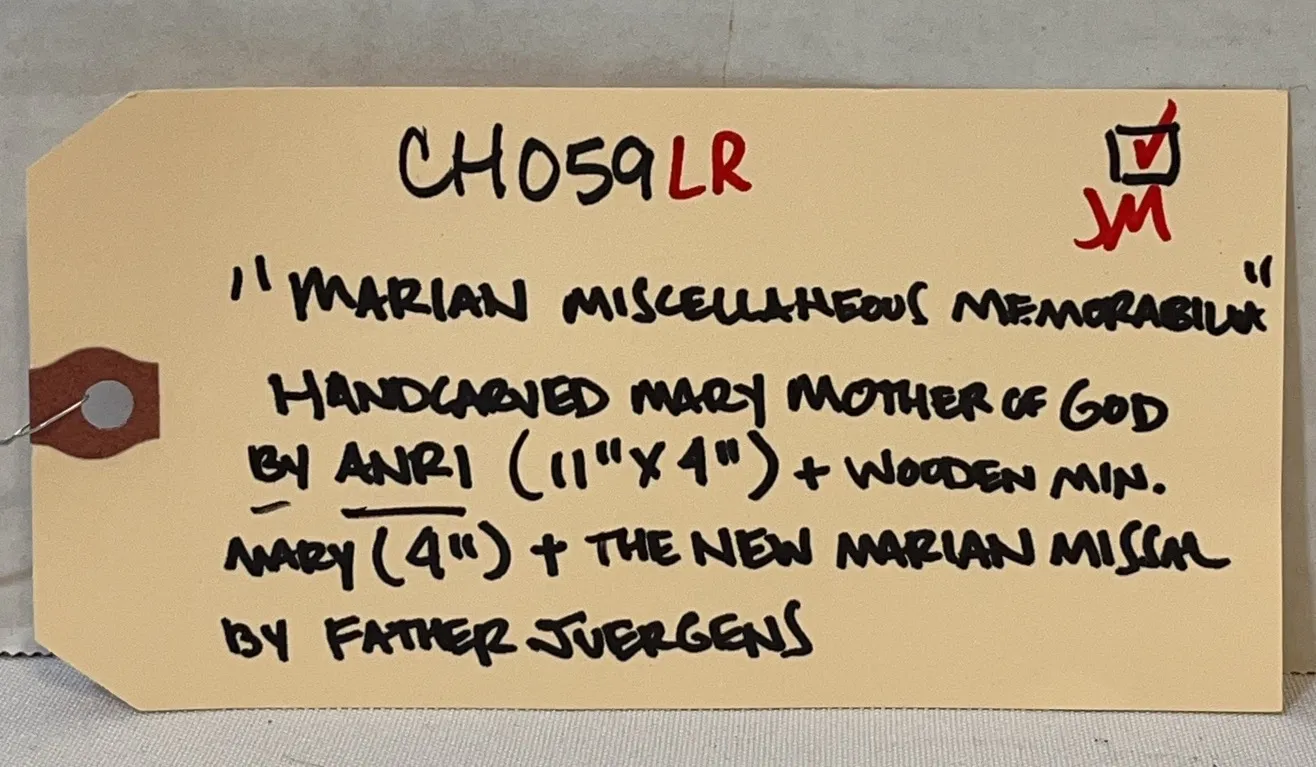 CH059LR
JM
"MARIAN MISCELLANEOUS MEMORABILIA"
HANDCARVED MARY MOTHER OF GOD
BY ANRI (11"X4") + WOODEN MIN.
MARY (4") + THE NEW MARIAN MISSAL
BY FATHER JUERGENS